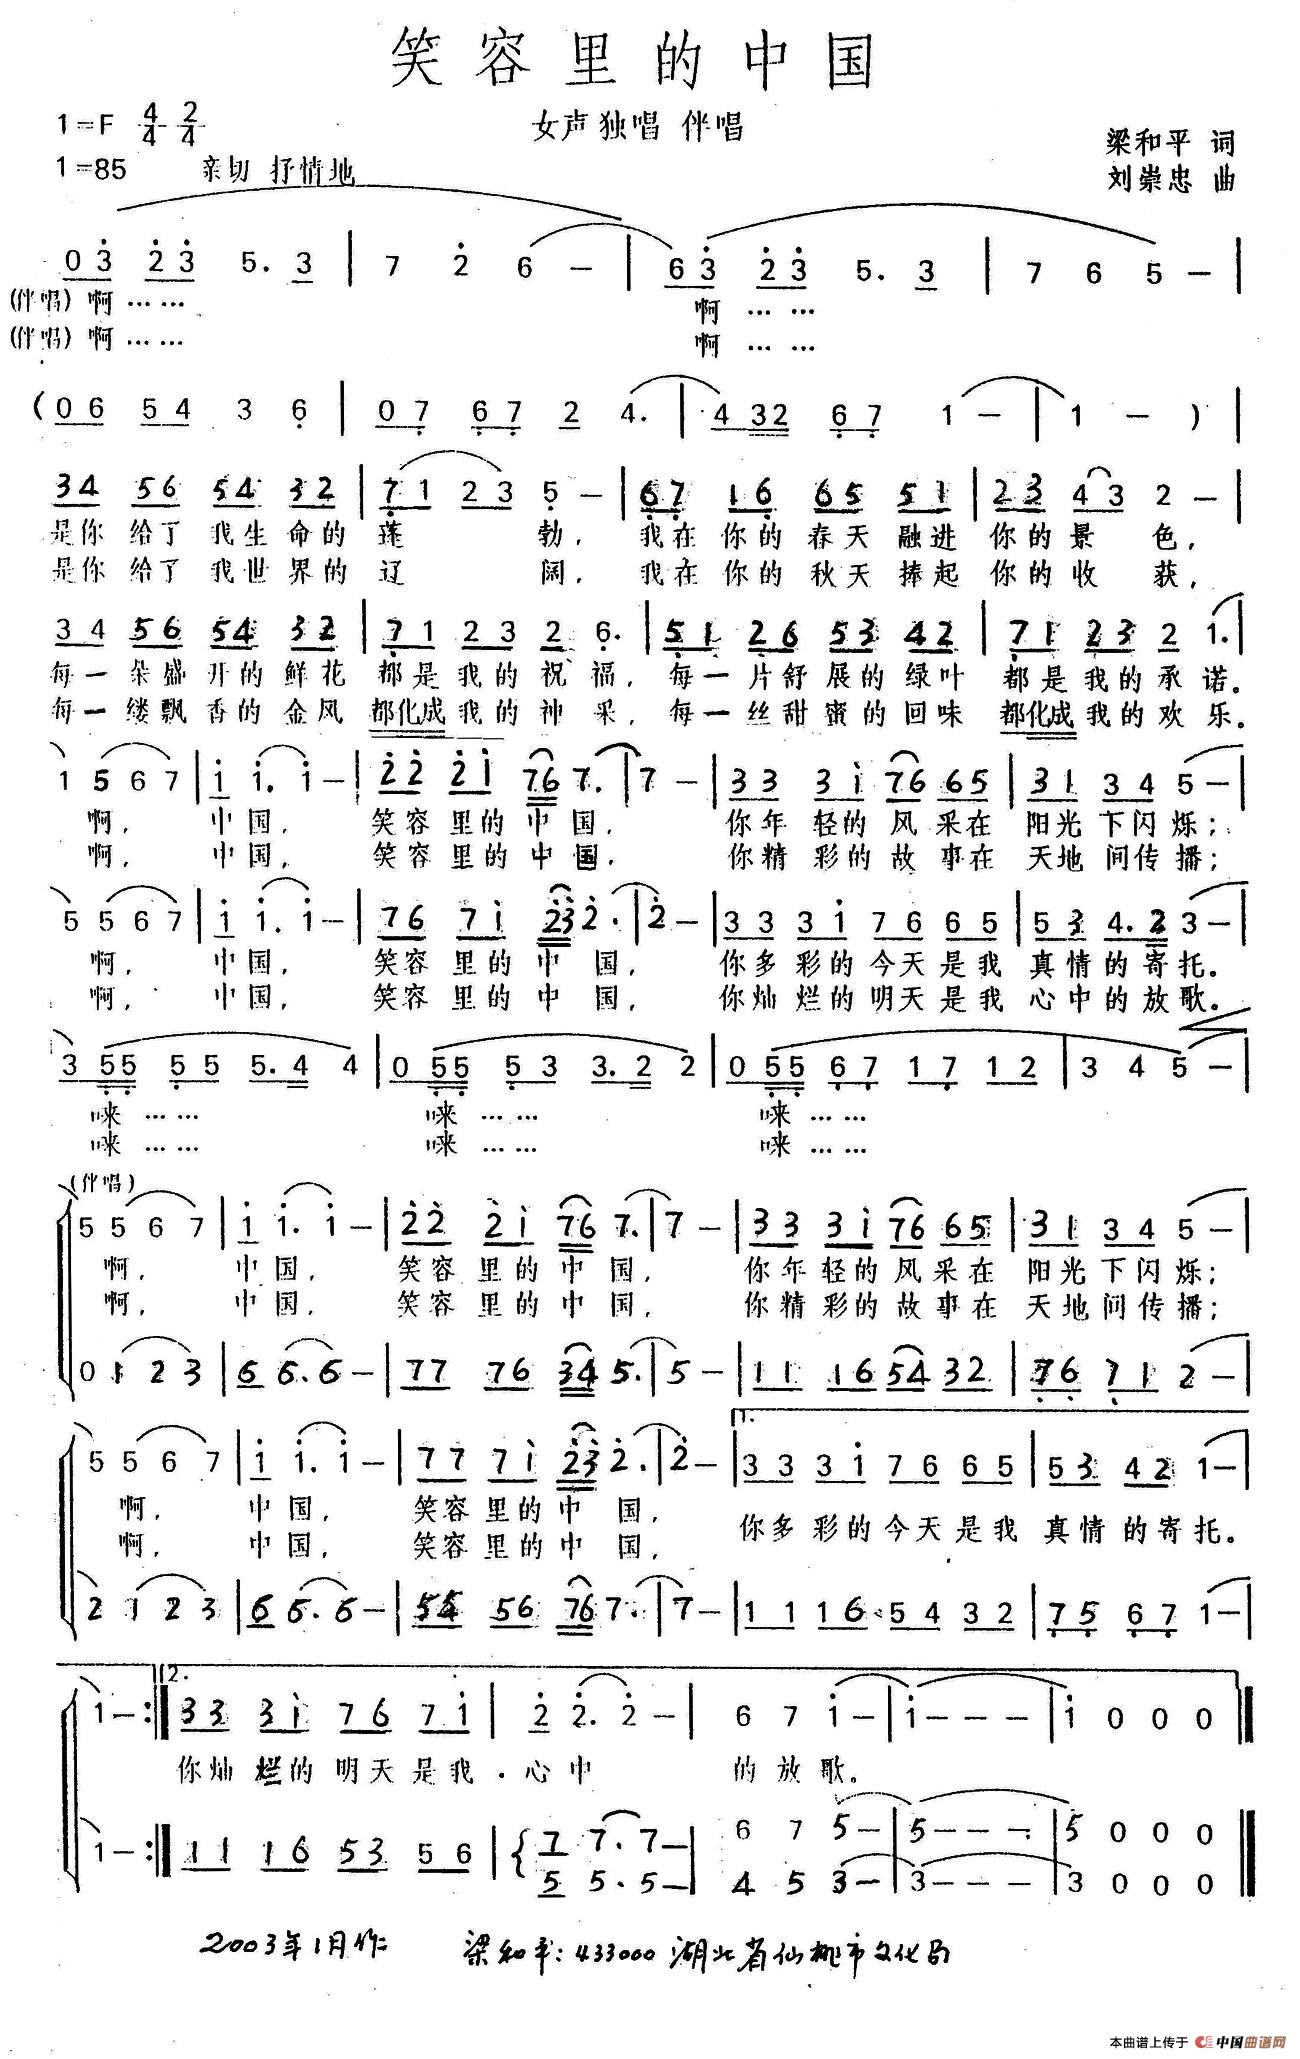 笑容里的中国
1=F 4/4 2/4
女声独唱 伴唱
梁和平 词
1=85 亲切 抒情地
刘崇忠 曲
03 23 5.3 | 7 2 6 – | 63 23 5.3 | 7 6 5 – |
(伴唱)啊…… 啊……
(伴唱)啊…… 啊……
(06 54 3 6 | 07 67 2 4. | 432 67 1 – | 1 – ) |
34 56 54 32 | 71 23 5 – | 67 16 65 51 | 23 43 2 – |
是你 给了 我生 命的 蓬 勃, 我在 你的 春天 融进 你的 景 色,
是你 给了 我世 界的 辽 阔, 我在 你的 秋天 捧起 你的 收 获,
34 56 54 32 | 71 23 2 6. | 51 26 53 42 | 71 23 2 1. |
每一 朵盛 开的 鲜花 都是 我的 祝 福, 每一 片舒 展的 绿叶 都是 我的 承 诺。
每一 缕飘 香的 金风 都化成 我的 神 采, 每一 丝甜 蜜的 回味 都化成 我的 欢 乐。
1 5 6 7 | 1 1. 1 – | 22 21 76 7. | 7 – | 33 31 76 65 | 31 34 5 – |
啊, 中国, 笑容 里的 中 国, 你年 轻的 风 采在 阳光 下闪 烁;
啊, 中国, 笑容 里的 中 国, 你精 彩的 故 事在 天地 间传 播;
5 5 6 7 | 1 1. 1 – | 76 71 23 2. | 2 – | 33 31 76 65 | 53 4.2 3 – |
啊, 中国, 笑容 里的 中 国, 你多 彩的 今天 是我 真情 的寄 托。
啊, 中国, 笑容 里的 中 国, 你灿 烂的 明天 是我 心中 的放 歌。
3 55 55 5.4 4 | 0 55 53 3.2 2 | 0 55 67 17 12 | 3 4 5 – |
唻…… 唻…… 唻……
唻…… 唻…… 唻……
(伴唱)
5 5 6 7 | 1 1. 1 – | 22 21 76 7. | 7 – | 33 31 76 65 | 31 34 5 – |
啊, 中国, 笑容 里的 中 国, 你年 轻的 风 采在 阳光 下闪 烁;
啊, 中国, 笑容 里的 中 国, 你精 彩的 故 事在 天地 间传 播;
0 1 2 3 | 6 6. 6 – | 77 76 34 5. | 5 – | 11 16 54 32 | 76 71 2 – |
1.
5 5 6 7 | 1 1. 1 – | 77 71 23 2. | 2 – | 33 31 76 65 | 53 42 1 – |
啊, 中国, 笑容 里的 中 国, 你多 彩的 今天 是我 真情 的寄 托。
啊, 中国, 笑容 里的 中 国,
2 1 2 3 | 6 6. 6 – | 54 56 76 7. | 7 – | 11 16 54 32 | 75 67 1 – |
2.
1 – :‖ 33 31 76 71 | 2 2. 2 – | 6 7 1 – | 1 – – – | 1 0 0 0 ‖
你灿 烂的 明天 是我 心中 的 放 歌。
1 – :‖ 11 16 53 56 | 7 7. 7 – | 6 7 5 – | 5 – – – | 5 0 0 0 ‖
5 5. 5 – | 4 5 3 – | 3 – – – | 3 0 0 0
2003年1月作 梁和平: 433000 湖北省仙桃市文化局
本曲谱上传于 中国曲谱网